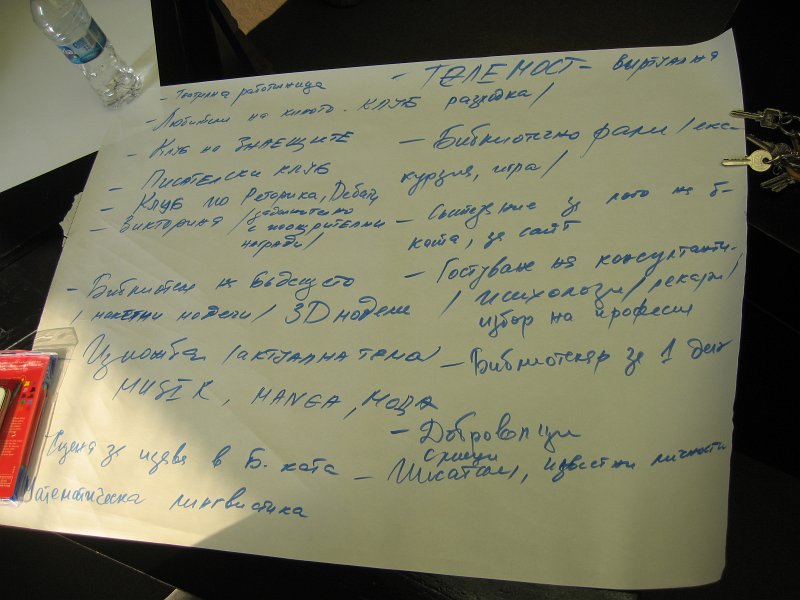 - Театрална работилница
- Любители на киното. Клуб
- Клуб на ЗНАЕЩИТЕ
- Писателски клуб
- Клуб по Реторика, Дебати
- Викторина /задължително
с поощрителни
награди/
- Библиотеки на бъдещето
/ макетни модели / 3D модели
Изложба /актуална тема/
MUSIK, MANGA, МОДА
Сцена за изява в Б. ката
Математическа лингвистика
- ТЕЛЕМОСТ - виртуална
разходка/
- Библиотечно рали /екс-
курзия, игра/
- Състезание за лого на б-
ката, за сайт
- Гостуване на консултанти -
/ психолози / лекари /
избор на професия
- Библиотекар за 1 ден
- Доброволци
- Срещи
Писатели, известни личности